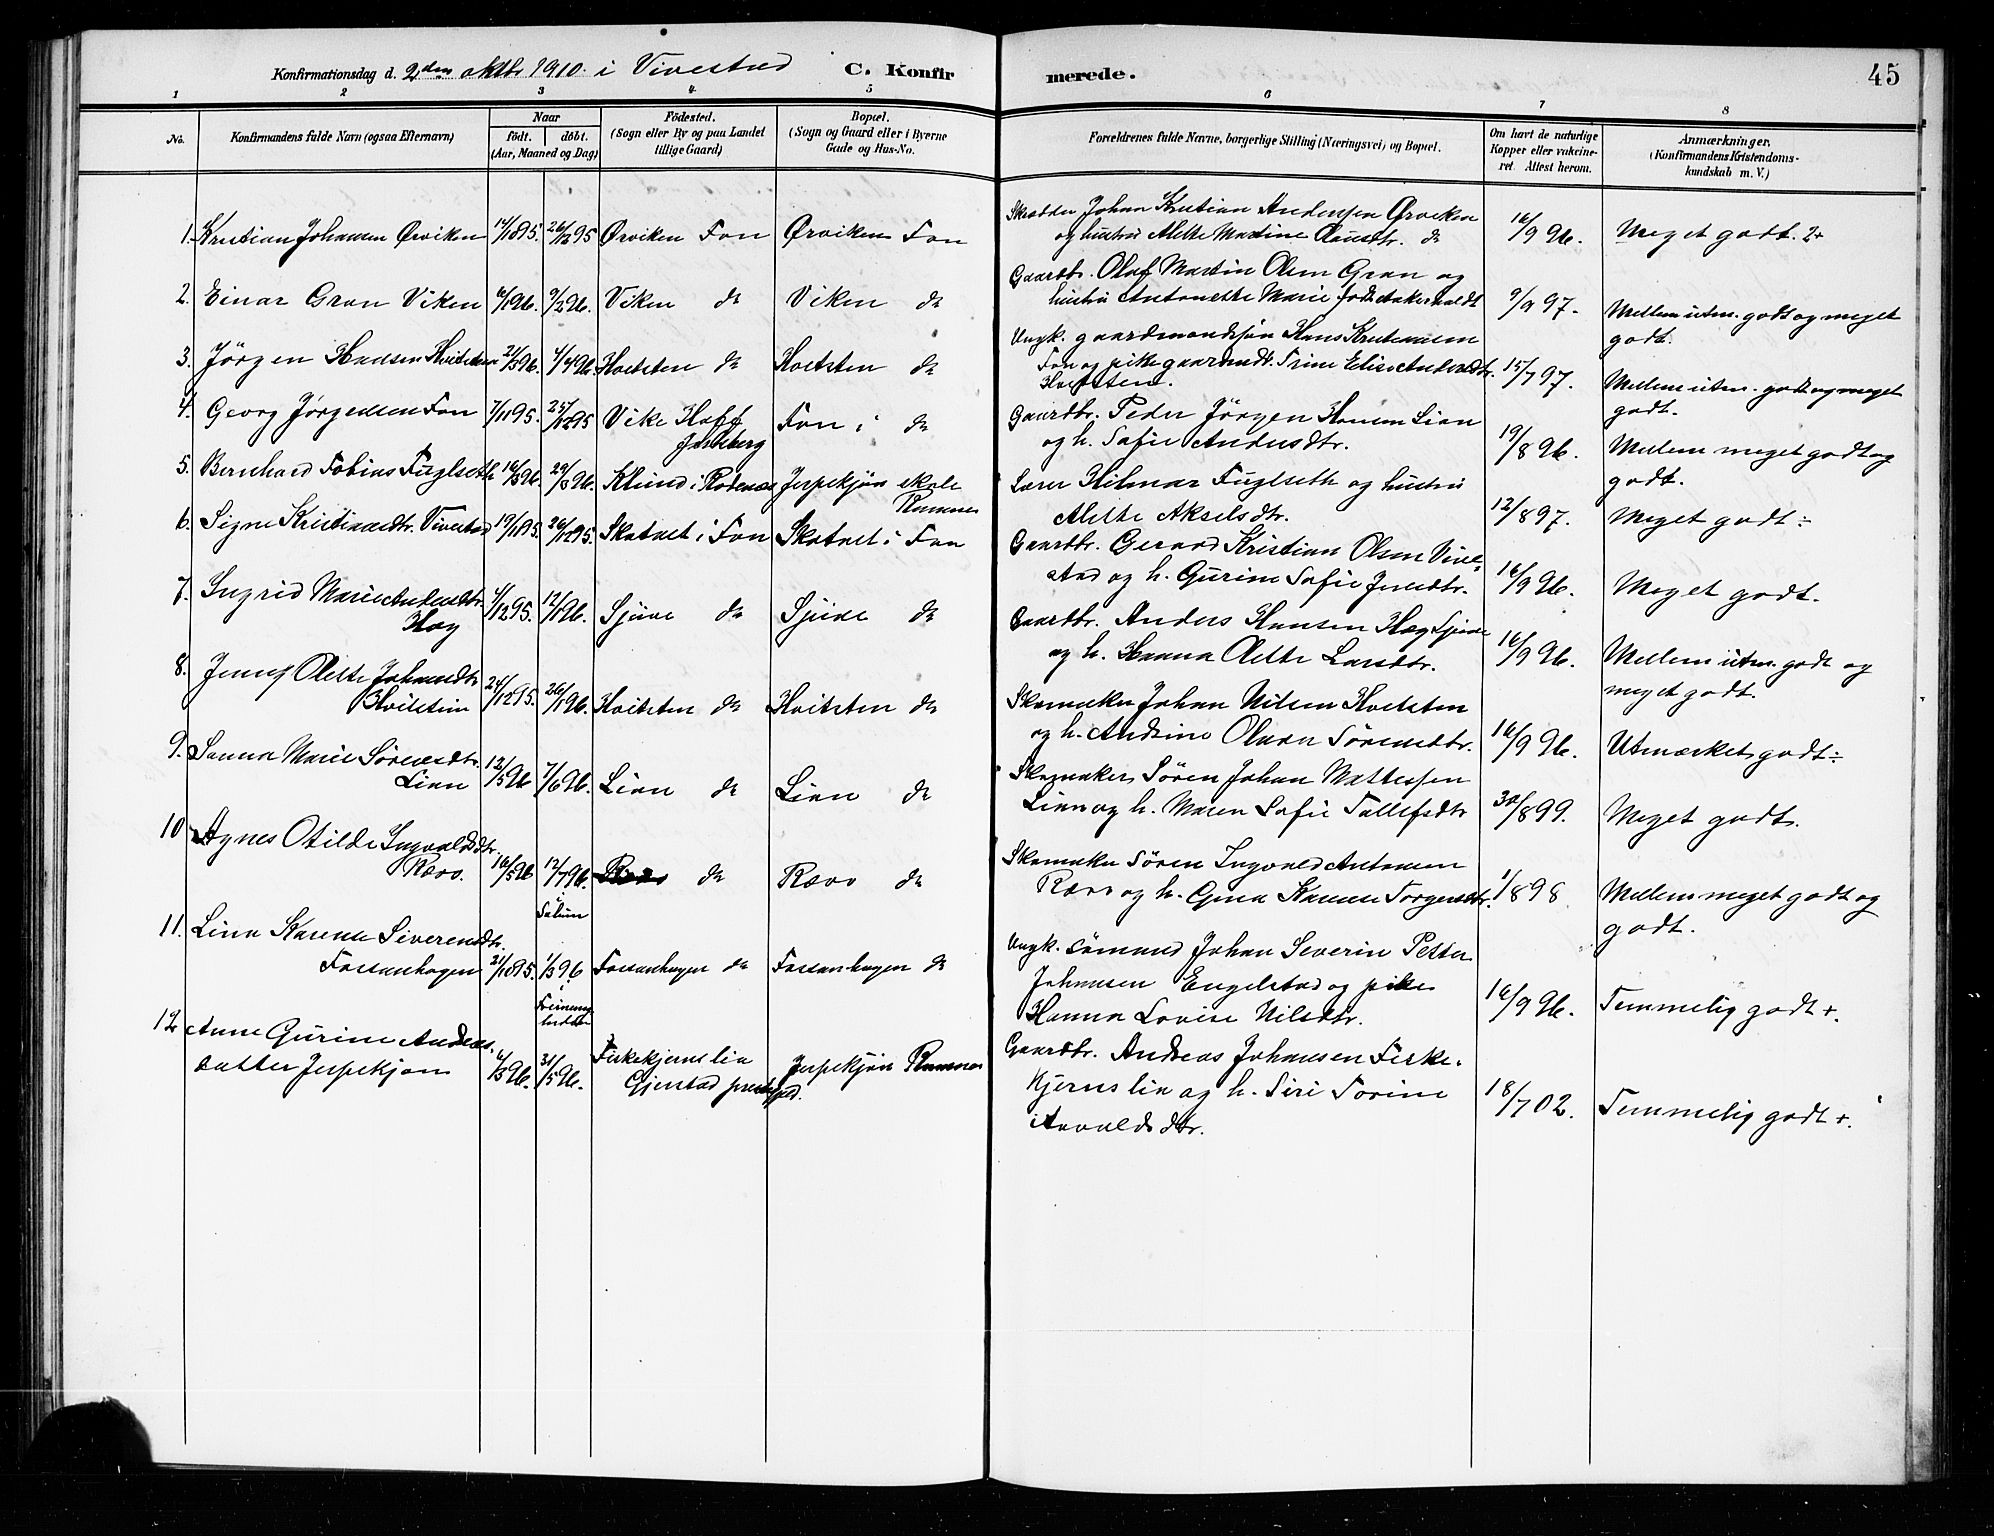 Konfirmationsdag d. 2den oktbr 1910. i Vivestad C. Konfirmerede. 45
1 2 3 4 5 6 7 8
No. Konfirmandens fulde Navn (ogsaa Efternavn) Naar født. døbt. (Aar, Maaned og Dag) Fødested. (Sogn eller By og paa Landet tillige Gaard) Bopæl. (Sogn og Gaard eller i Byerne Gade og Hus-No. Forældrenes fulde Navne, borgerlige Stilling (Næringsvei) og Bopæl. Om havt de naturlige Kopper eller vakcineret. Attest herom. Anmærkninger. (Konfirmandens Kristendomskundskab m. V.)
1. Kristian Johansen Ørviken 14/10 95. 26/12 95 Ørviken Fon Ørviken Fon Skrædder Johan Kristian Andersen Ørviken
og hustru Alette Martine Clausdtr. do 16/9 96. Meget godt. 2+
2. Einar Gran Viken 6/1 96. 9/2 96. Viken do Viken do Gaardbr. Olaf Martin Olsen Gran og
hustru Antonette Marie født Akerholdt 9/9 97. Mellem utm. godt og meget
godt.
3. Jørgen Hansen Hvitsten 24/3 96. 4/4 96. Hvitsten do Hvitsten do Ungk. gaardmandssøn Hans Kristensen
Fon og pike gaardmdt. Trine Elise Andersdtr.
Hvitsten. 15/7 97. Mellem utm. godt og meget
godt.
4. Georg Jørgensen Fon 7/11 95. 25/12 95 Vike Hoff
Jarlsberg Fon i do Gaardbr. Peder Jørgen Hansen Lian
og h. Sofie Andersdtr. 19/8 96. Mellem meget godt og
godt.
5. Bernhard Tobias Fuglseth 16/3 96. 29/3 96. Klund i Rødenes Jerpekjøn skole
Ramnes Lærer Hilmar Fuglseth og hustru
Alette Akselsdtr. 12/8 97. Meget godt ÷
6. Signe Kristiansdtr. Vivestad 19/11 95. 26/12 95. Skotvet i Fon Skotvet i Fon Gaardbr. Gerard Kristian Olsen Vive-
stad og h. Gurine Sofie Jensdtr. 16/9 96. Meget godt.
7. Ingrid Marie Andersdtr.
Hæg 4/12 95. 12/1 96. Sjuve do Sjuve do Gaardbr. Anders Hansen Hæg Sjuve
og h. Hanna Alette Larsdtr. 16/9 96. Mellem utm. godt og
meget godt.
8. Jenny Alette Johansdtr
Hvitstein 24/12 95. 26/1 96. Hvitsten do Hvitsten do Skomaker Johan Nilsen Hvitsten
og h. Andrine Olava Sørensdtr. 16/9 96. Utmerket godt ÷
9. Sanna Marie Sørensdtr.
Lian 12/5 96 7/6 96. Lian do Lian do Skomaker Søren Johan Mattessen
Lian og h. Maren Sofie Tollefsdtr 30/8 99. Meget godt.
10 Agnes Otilde Ingvaldsdtr.
Rævo. 16/5 96 12/7 96. do Rævo do Skomaker Søren Ingvald Antonsen
Rævo og h. Gina Karense Torgersdtr. 1/8 98 Mellem meget godt og
godt.
11. Lina Karense Siverensdtr.
Fossanhagen 21/10 95. 1/3 96 Fossanhagen do Fossanhagen do Ungk. sømand Johan Severin Petter
Johansen Engelstad og pike
Hanna Lovise Nilsdtr. 16/9 96. Temmelig godt +.
12 Anne Gurine Andreas-
datter Jerpekjøn 6/3 96. 31/5 96. Firkekjernslia
Gjerstad prestegjeld. Jerpekjøn Ramnes Gaardbr. Andreas Johansen Firke-
kjernslia og h. Siri Torine
Aavaldsdtr. 18/7 02. Temmelig godt +.